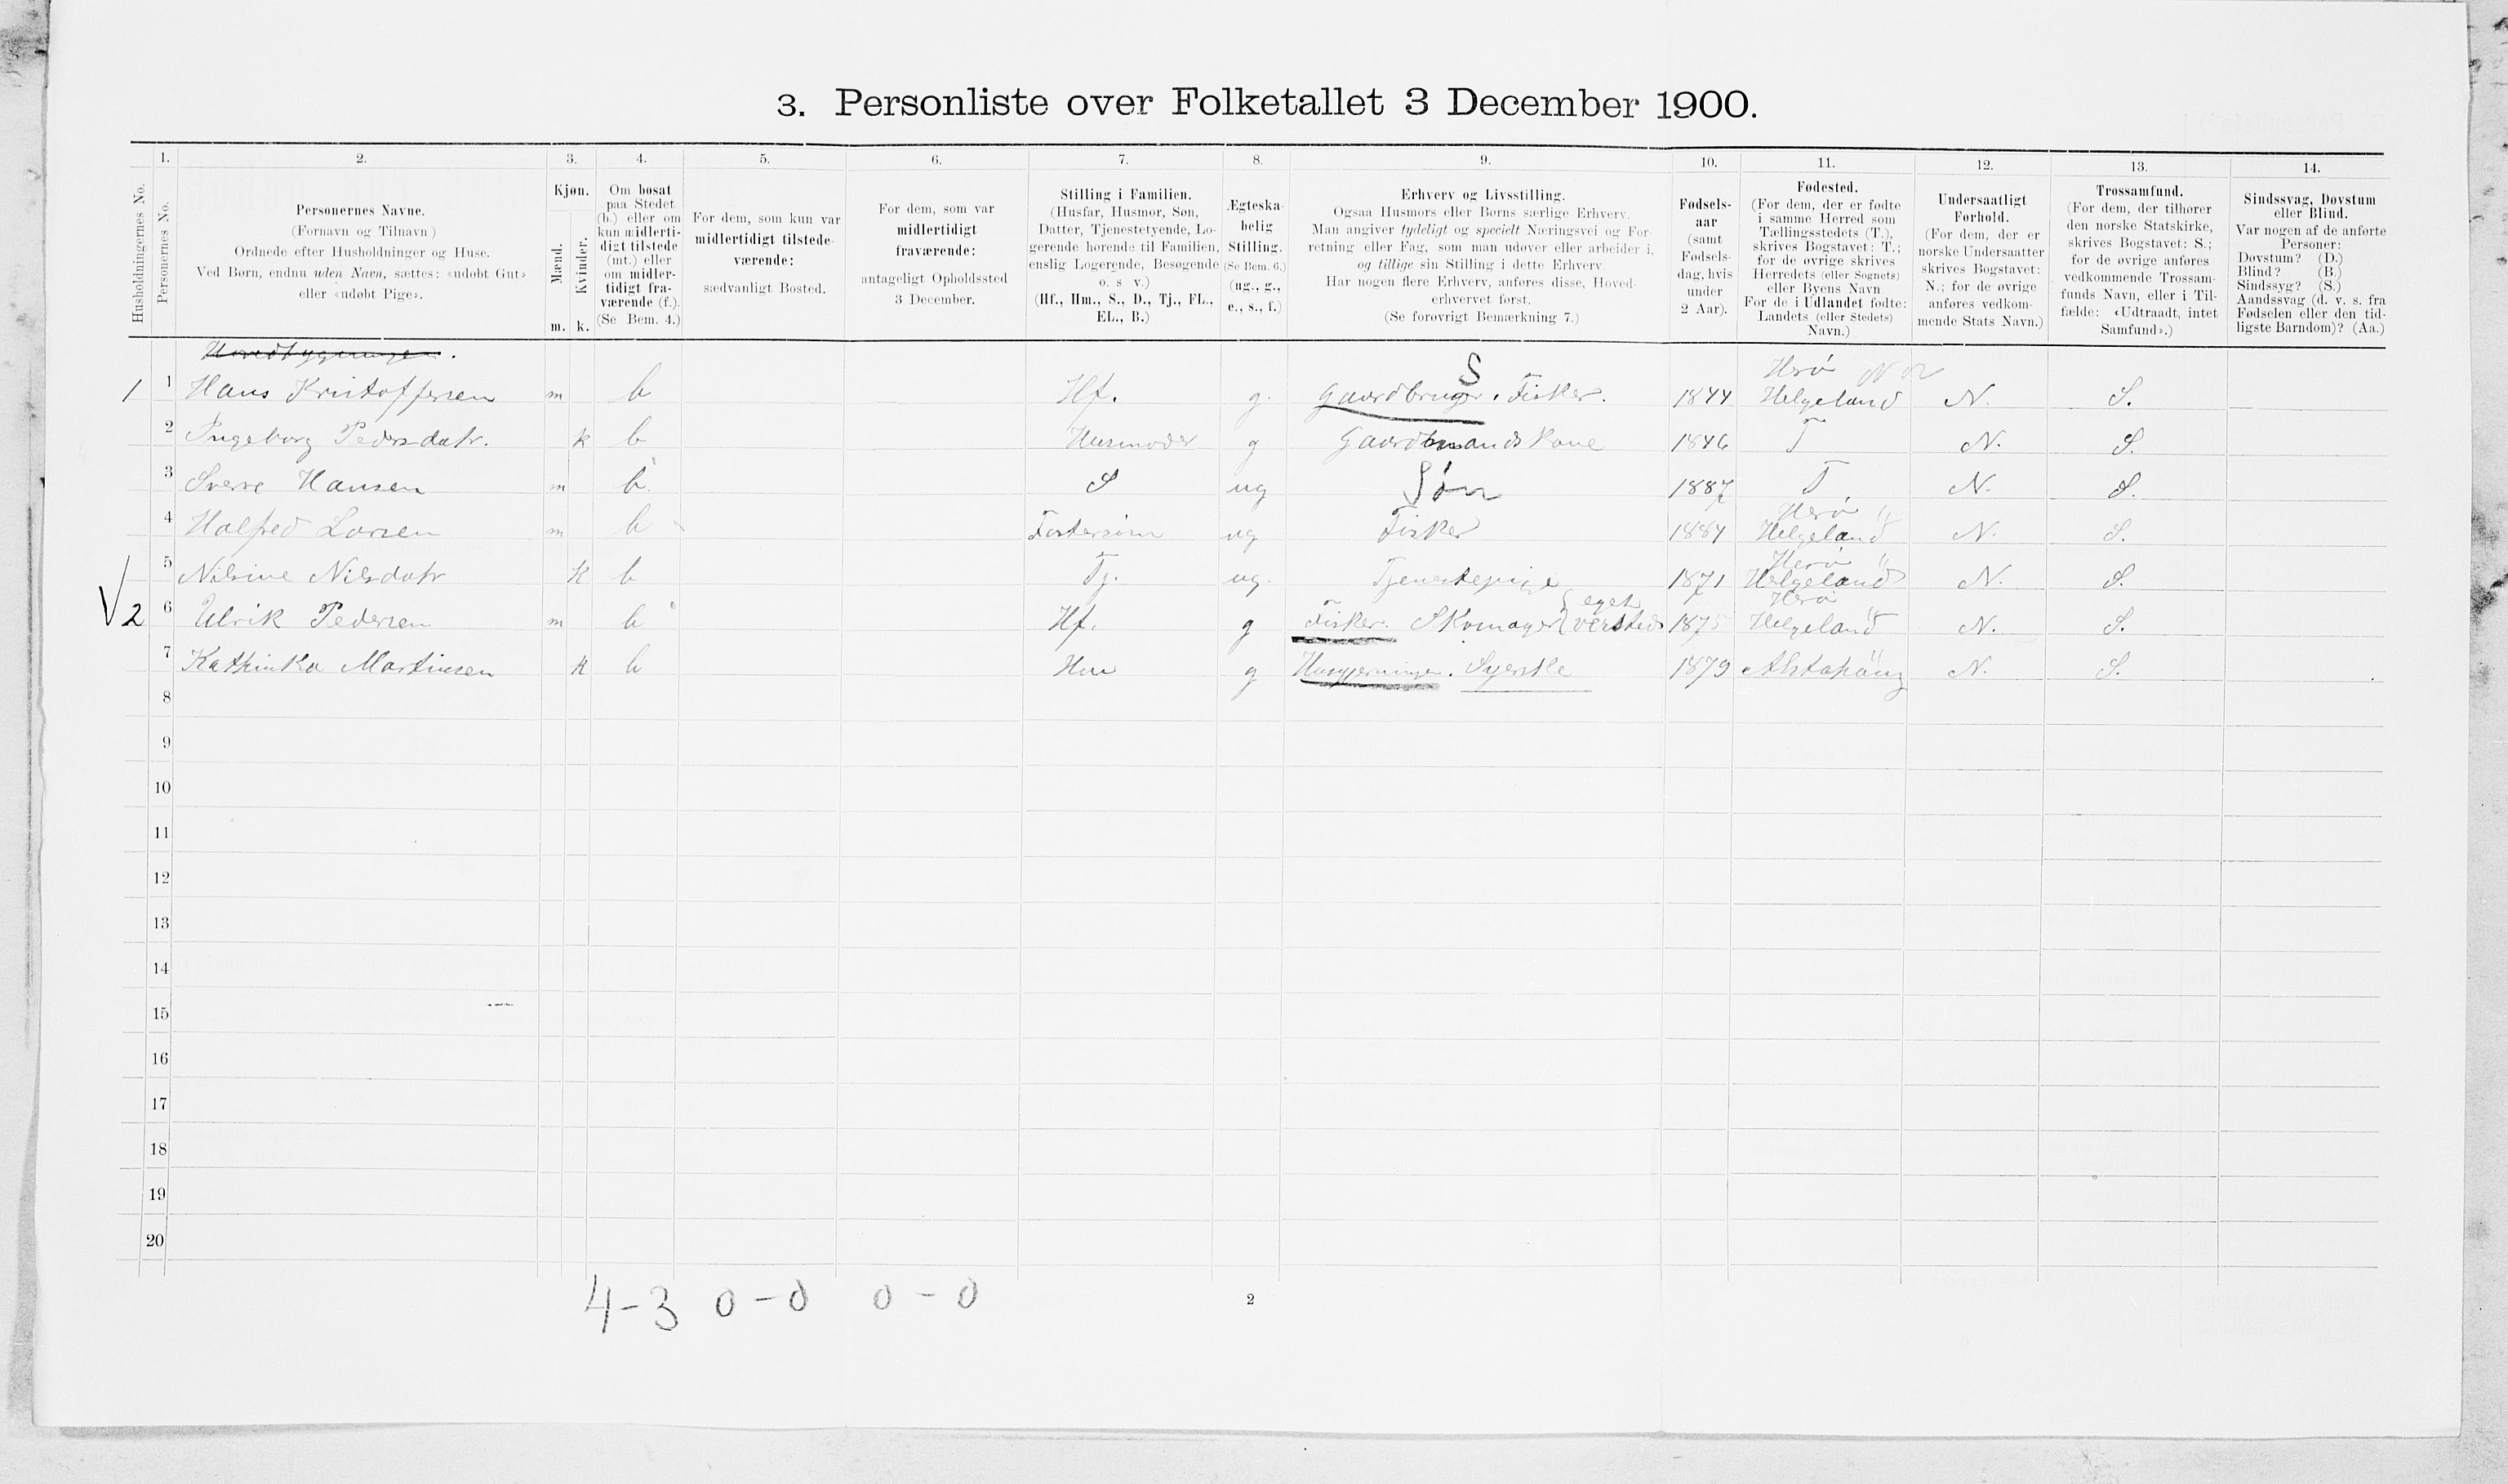 3. Personliste over Folketallet 3 December 1900.
1. 2. 3. 4. 5. 6. 7. 8. 9. 10. 11. 12. 13. 14.
Husholdningernes No.
Personernes No.
Personernes Navne.
(Fornavn og Tilnavn.)
Ordnede efter Husholdninger og Huse.
Ved Børn, endnu uden Navn, sættes: «udøbt Gut»
eller «udøbt Pige».
Kjøn.
Mænd.
Kvinder.
m. k.
Om bosat
paa Stedet
(b.) eller om
kun midlerti-
digt tilstede
(mt.) eller
om midler-
tidigt fra-
værende (f.).
(Se Bem. 4.)
For dem, som kun var
midlertidigt tilstede-
værende:
sædvanligt Bosted.
For dem, som var
midlertidigt
fraværende:
antageligt Opholdssted
3 December.
Stilling i Familien.
(Husfar, Husmor, Søn,
Datter, Tjenestetyende, Lo-
gerende hørende til Familien,
enslig Logerende, Besøgende
o. s. v.)
(Hf., Hm., S., D., Tj., FL.,
EL., B.)
Ægteska-
belig
Stilling.
(Se Bem. 6.)
(ug., g.,
e., s., f.)
Erhverv og Livsstilling.
Ogsaa Husmors eller Børns særlige Erhverv.
Man angiver tydeligt og specielt Næringsvei og For-
retning eller Fag, som man udøver eller arbeider i,
og tillige sin Stilling i dette Erhverv.
Har nogen flere Erhverv, anføres disse, Hoved-
erhvervet først.
(Se forøvrigt Bemærkning 7.)
Fødsels-
aar
(samt
Fødsels-
dag, hvis
under
2 Aar).
Fødested.
(For dem, der er fødte
i samme Herred som
Tællingsstedets (T.),
skrives Bogstavet: T.;
for de øvrige skrives
Herredets (eller Sognets)
eller Byens Navn.
For de i Udlandet fødte:
Landets (eller Stedets)
Navn.)
Undersaatligt
Forhold.
(For dem, der er
norske Undersaatter
skrives Bogstavet:
N.; for de øvrige
anføres vedkom-
mende Stats Navn.)
Trossamfund.
(For dem, der tilhører
den norske Statskirke,
skrives Bogstavet: S.;
for de øvrige anføres
vedkommende Trossam-
funds Navn, eller i Til-
fælde: «Udtraadt, intet
Samfund».)
Sindssvag, Døvstum
eller Blind.
Var nogen af de anførte
Personer:
Døvstum? (D.)
Blind? (B.)
Sindssyg? (S.)
Aandssvag (d. v. s. fra
Fødselen eller den tid-
ligste Barndom)? (Aa.)
Hovedbygningen.
S Herø
1 1 Hans Kristoffersen m b Hf. g. Gaardbruger. Fisker. 1844 Helgeland N. S.
2 Ingeborg Pedersdatr. k b Husmoder g Gaardmandskone 1846 T N. S.
3 Sverre Hansen m b S ug Søn 1887 T N. S.
Herø "
4 Halfred Larsen m b Fostersøn ug Fisker 1884 Helgeland N. S.
Herø "
5 Nilsine Nilsdatr k b Tj. ug. Tjenestepige 1871 Helgeland N. S.
eget Herø
2 6 Ulrik Pedersen m b Hf. g Fisker. Skomager versted 1875 Helgeland N. S.
7 Kathinka Martinsen k b Hm g Husgjerninger. Syerske 1879 Alstahaug N. S.
8
9
10
11
12
13
14
15
16
17
18
19
20
4-3 0-0 0-0
2